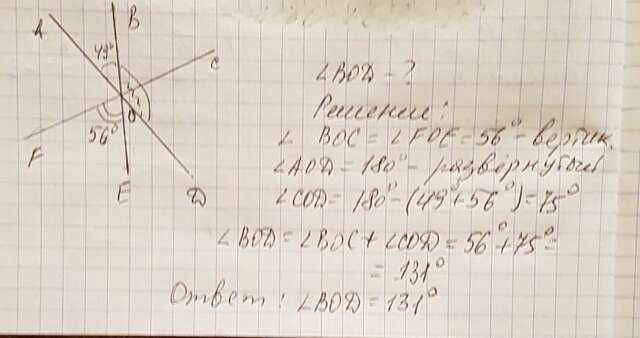 A B
49° C
O
56°
F E D
∠BOD - ?
Решение:
∠ BOC = ∠FOE = 56° - вертик.
∠AOD = 180° - развёрнутый
∠COD = 180° - (49° + 56°) = 75°
∠BOD = ∠BOC + ∠COD = 56° + 75° =
= 131°
Ответ: ∠BOD = 131°